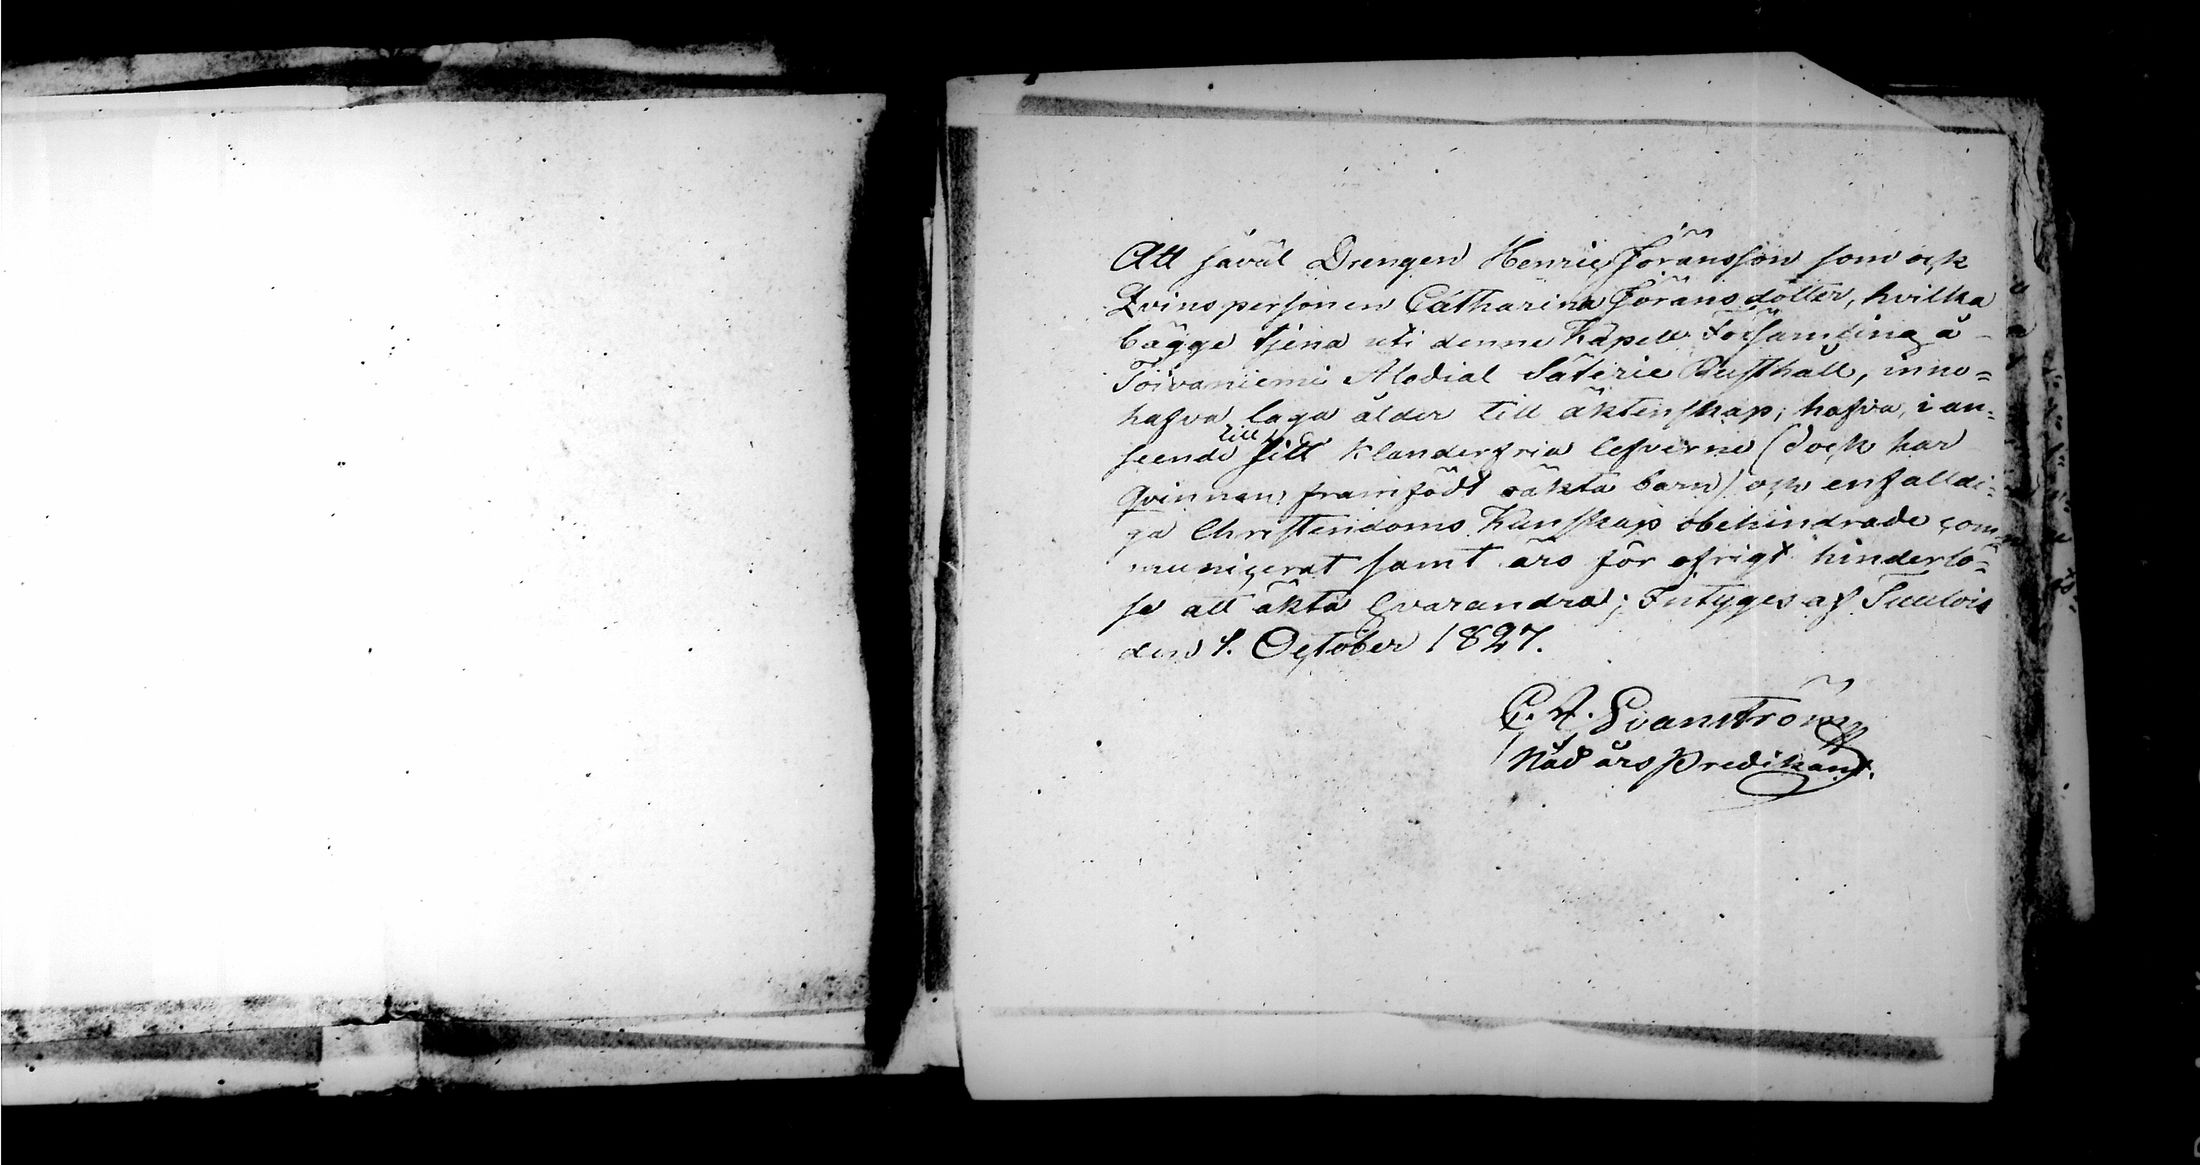 Att såväl Drengen Henric Jöransson som ock
Qvinspersonen Catharina Jöransdotter, hvilka
bägge tjena uti denne Kapell Församling å
Toivaniemi Alodial Säterie Rusthåll, inne=
hafva laga ålder till äktenskap; hafva, i an=
seende till sitt klanderfria lefverne (dock har
Qvinnan framfödt oäkta barn) och enfaldi=
ga Christendoms Kunskap obehindrade com=
municerat samt äro för öfrigt hinderlö=
se att äkta hvarandra; Intyges af Tuulois
den 4. October 1827.
C. A. Svanström
Nåd års Predikant.